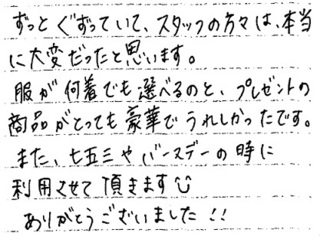 ずっとぐずっていて、スタッフの方々は、本当
に大変だったと思います。
服が何着でも選べるのと、プレゼントの
商品がとっても豪華でうれしかったです。
また、七五三やバースデーの時に
利用させて頂きます☺
ありがとうございました!!